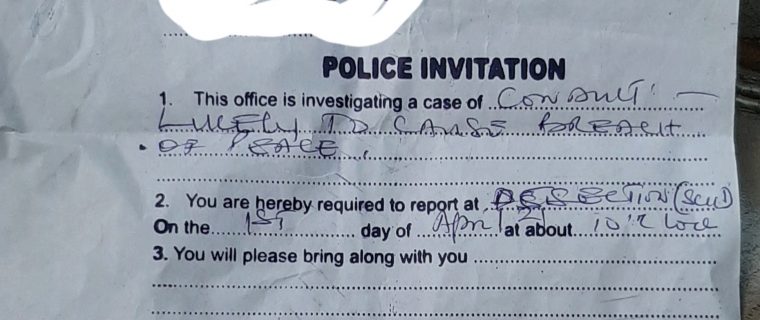 POLICE INVITATION
1. This office is investigating a case of Conduct
LIKELY TO CAUSE BREACH
OF PEACE.
2. You are hereby required to report at SECTION
On the 1ST day of April at about 10
3. You will please bring along with you